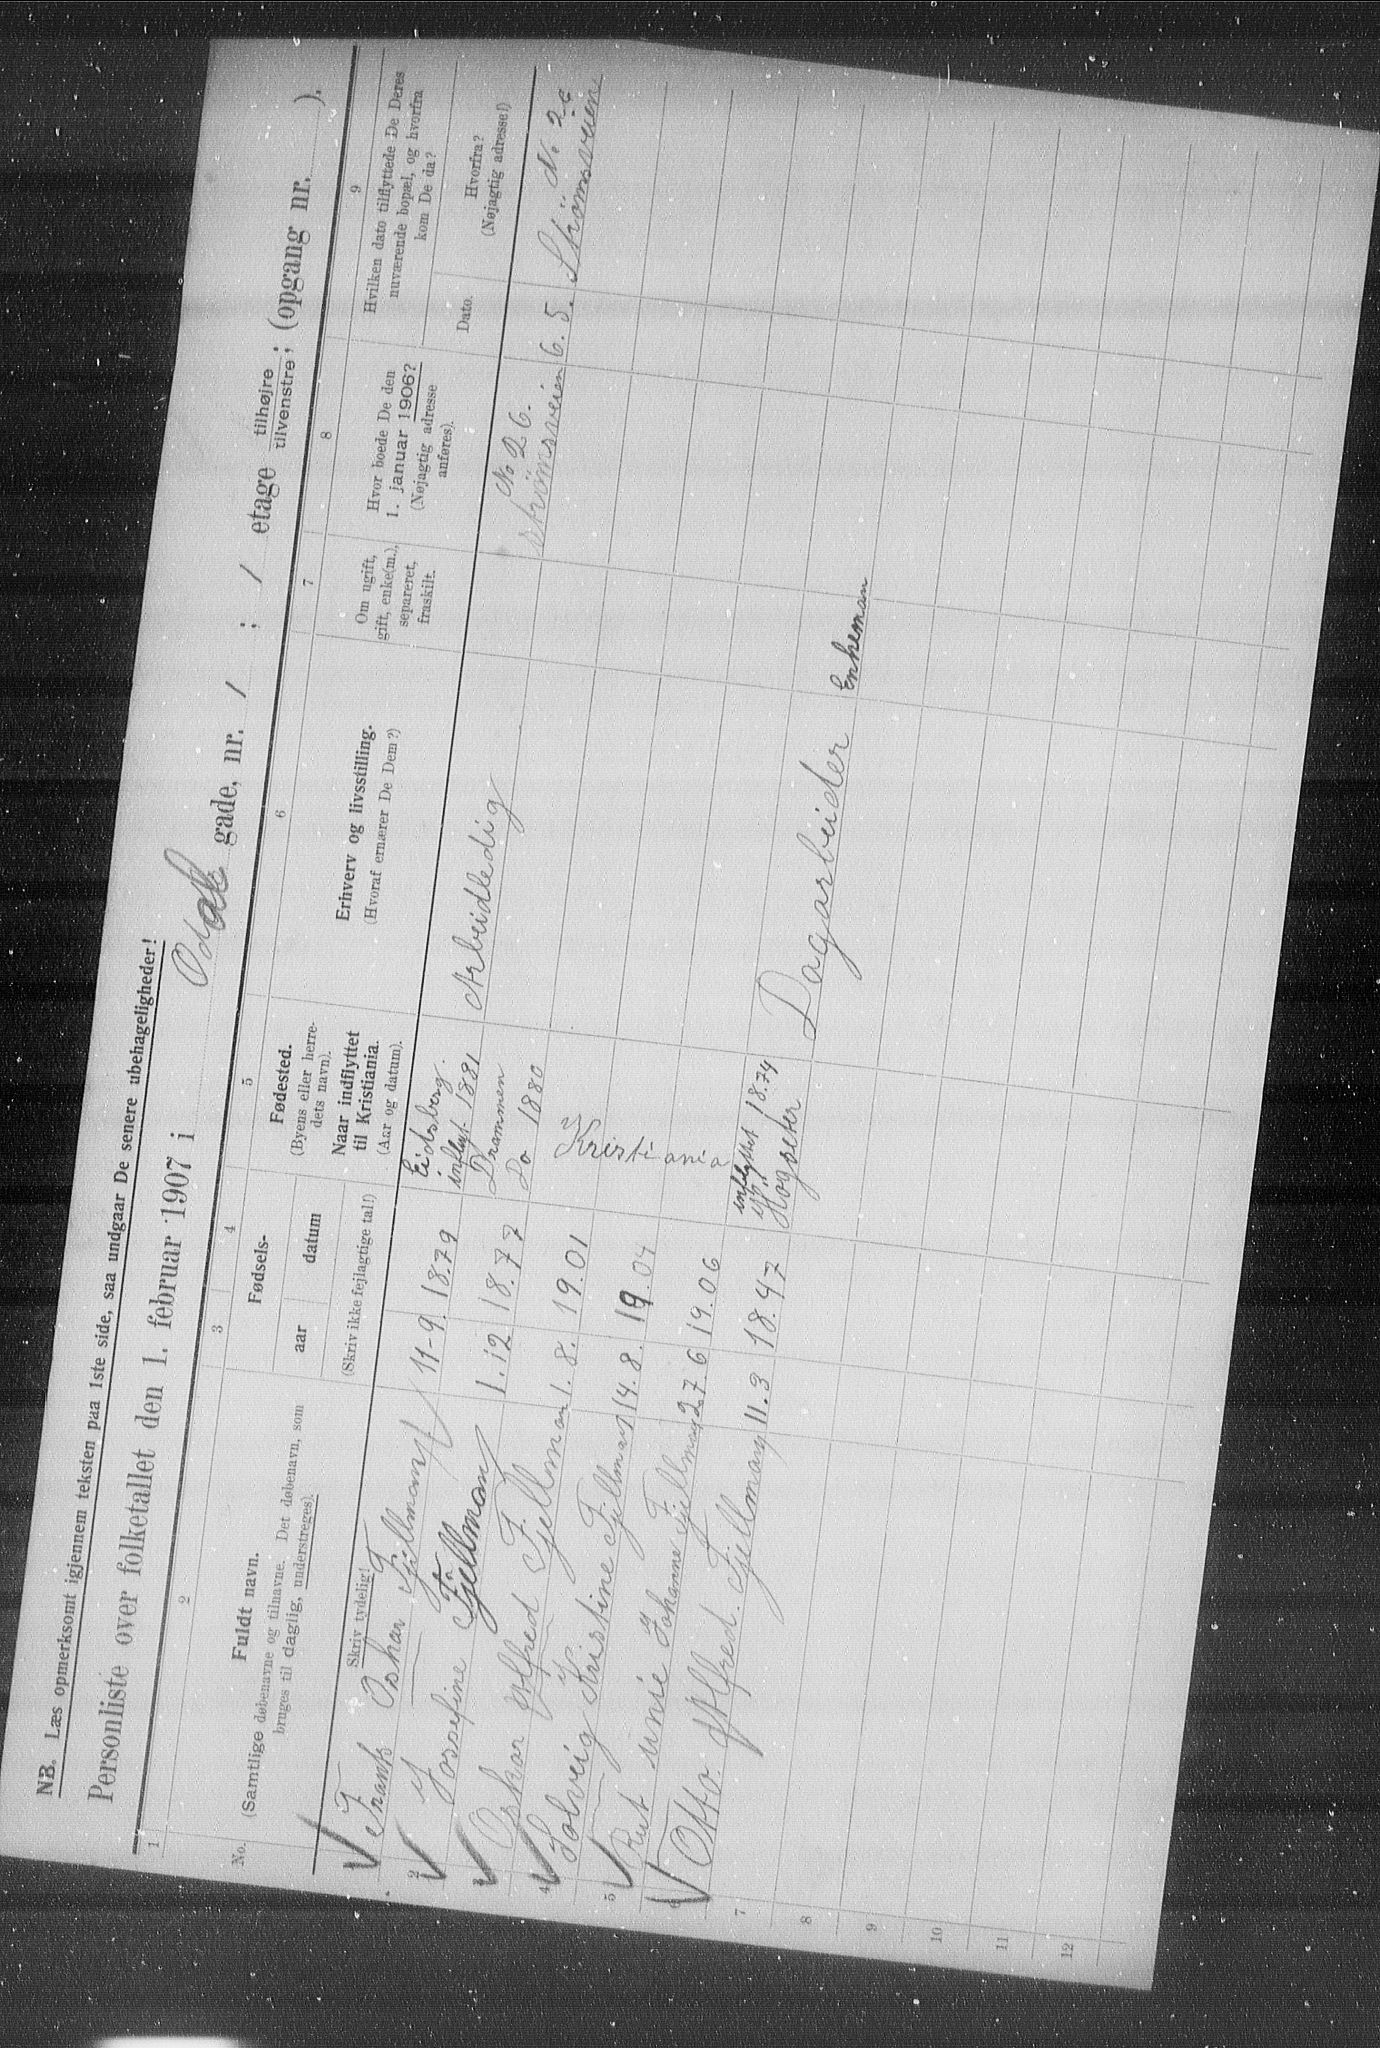 NB. Læs opmerksomt igjennem teksten paa 1ste side, saa undgaar De senere ubehageligheder!
Personliste over folketallet den 1. februar 1907 i gade, nr. 1 ; 1 etage tilhøjre tilvenstre; (opgang nr. ).
1 2 3 4 5 6 7 8 9
No.
Fuldt navn.
(Samtlige døbenavne og tilnavne. Det døbenavn, som
bruges til daglig, understreges).
Skriv tydelig!
Fødsels-
aar datum
(Skriv ikke fejlagtige tal!)
Fødested.
(Byens eller herre-
dets navn).
Naar indflyttet
til Kristiania.
(Aar og datum).
Erhverv og livsstilling.
(Hvoraf ernærer De Dem?)
Om ugift,
gift, enke(m.),
separeret,
fraskilt.
Hvor boede De den
1. januar 1906?
(Nøjagtig adresse
anføres).
Hvilken dato tilflyttede De Deres
nuværende bopæl, og hvorfra
kom De da?
Dato.
Hvorfra?
(Nøjagtig adresse!)
Frank Oskar Fjellman 11-9. 18.79 Eidsberg. inflyt. 1881 Arbeidledig No 26. Strømsveien 6. 5. Strømsveien No 26
2 Josefine Fjellman 1. 12 18.77 Drammen Do 1880
3 Oskar Alfred Fjellman 1. 8. 19.01 Kristiania
4 Solveig Kristine Fjellman 14. 8. 19.04
5 Rut Johanne Fjellman 27. 6 19.06
6 Otto Alfred Fjellman 11. 3 18.47 inflyttet 18.74 Dagarbeider Enkeman
7
8
9
10
11
12